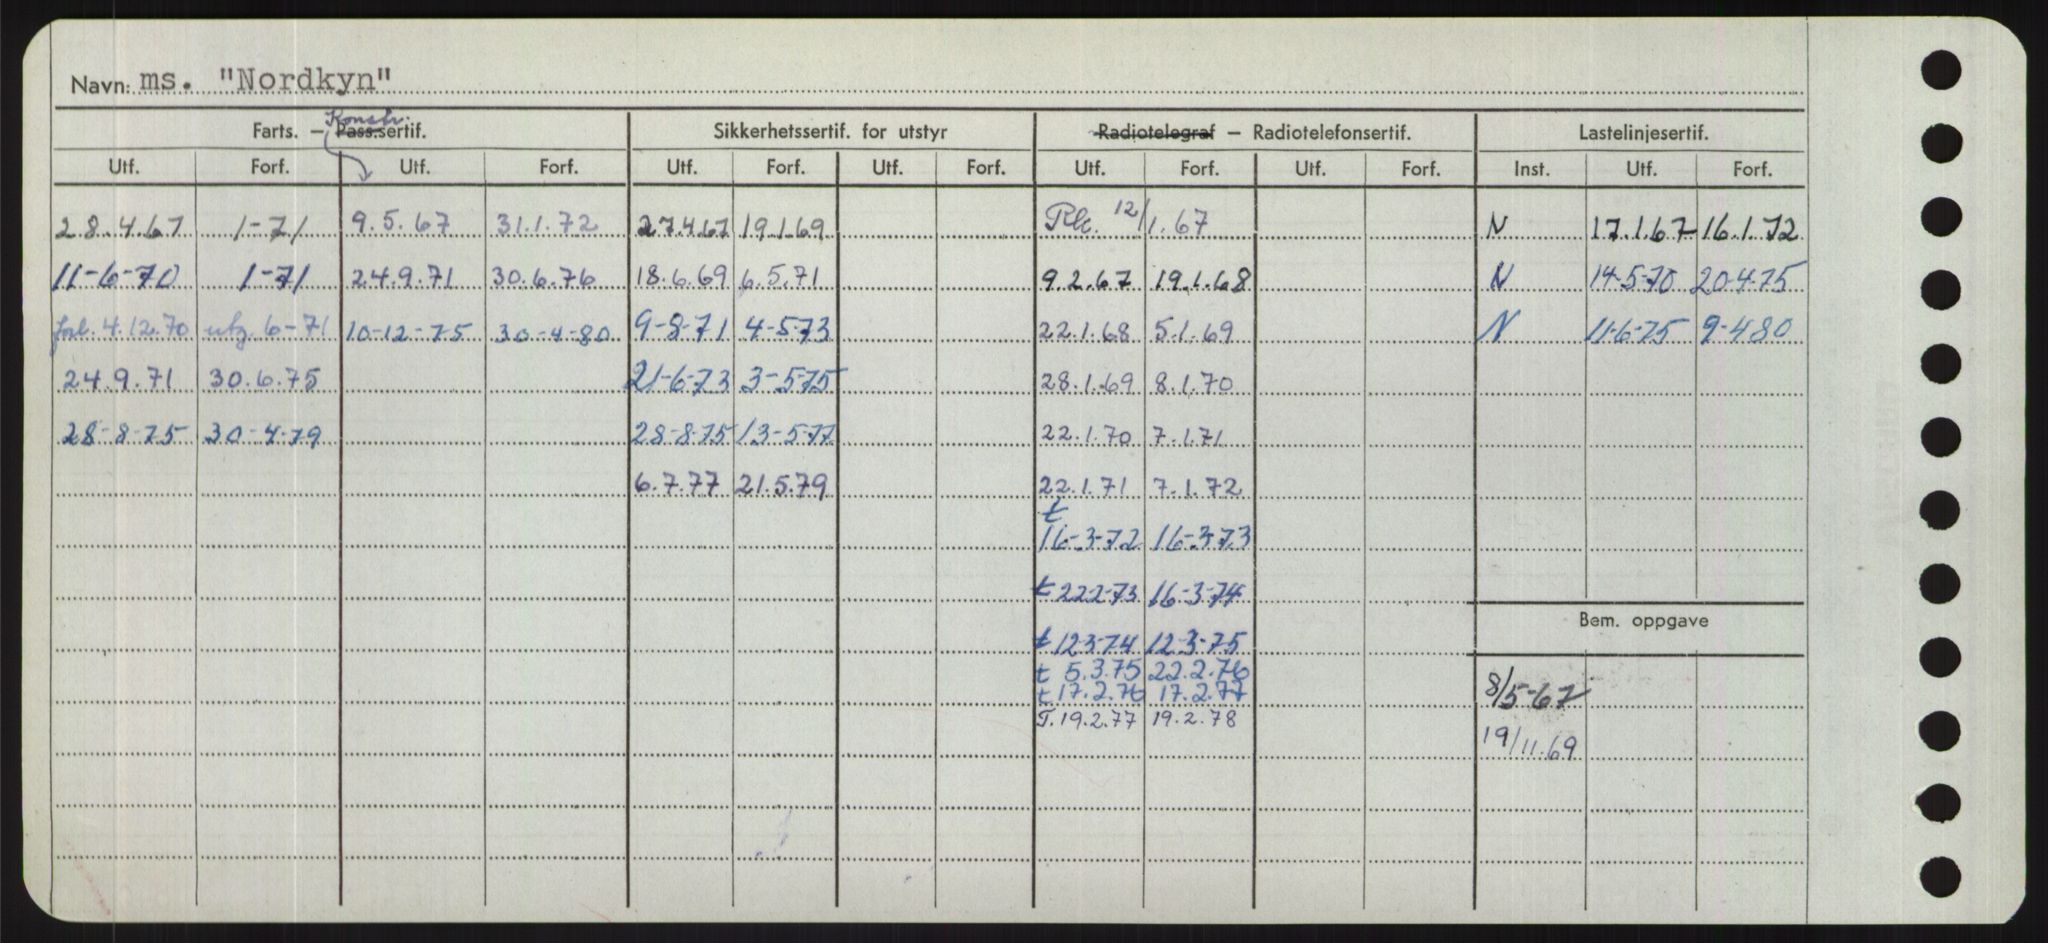 Navn: ms. "Nordkyn"
Konstr.
Farts. – Pass.sertif. Sikkerhetssertif. for utstyr Radiotelegraf – Radiotelefonsertif. Lastelinjesertif.
Utf. Forf. Utf. Forf. Utf. Forf. Utf. Forf. Utf. Forf. Utf. Forf. Inst. Utf. Forf.
28.4.67 1-71 9.5.67 31.1.72 27.4.67 19.1.69 12/1.67 N 17.1.67 16.1.72
11-6-70 1-71 24.9.71 30.6.76 18.6.69 6.5.71 9.2.67 19.1.68 N 14-5-70 20-4-75
forl. 4.12.70 utg. 6-71 10-12-75 30-4-80 9-8-71 4-5-73 22.1.68 5.1.69 N 11-6-75 9-4-80
24.9.71 30.6.75 21-6-73 3-5-75 28.1.69 8.1.70
28-8-75 30-4-79 28-8-75 13-5-77 22.1.70 7.1.71
6.7.77 21.5.79 22.1.71 7.1.72
t
16-3-72 16-3-73
t 22-2-73 16-3-74
Bem. oppgave
t 12-3-74 12-3-75
t 5.3.75 22.2.76
t 17.2.76 17.2.77 8/5-67
T. 19.2.77 19.2.78
19/11.69